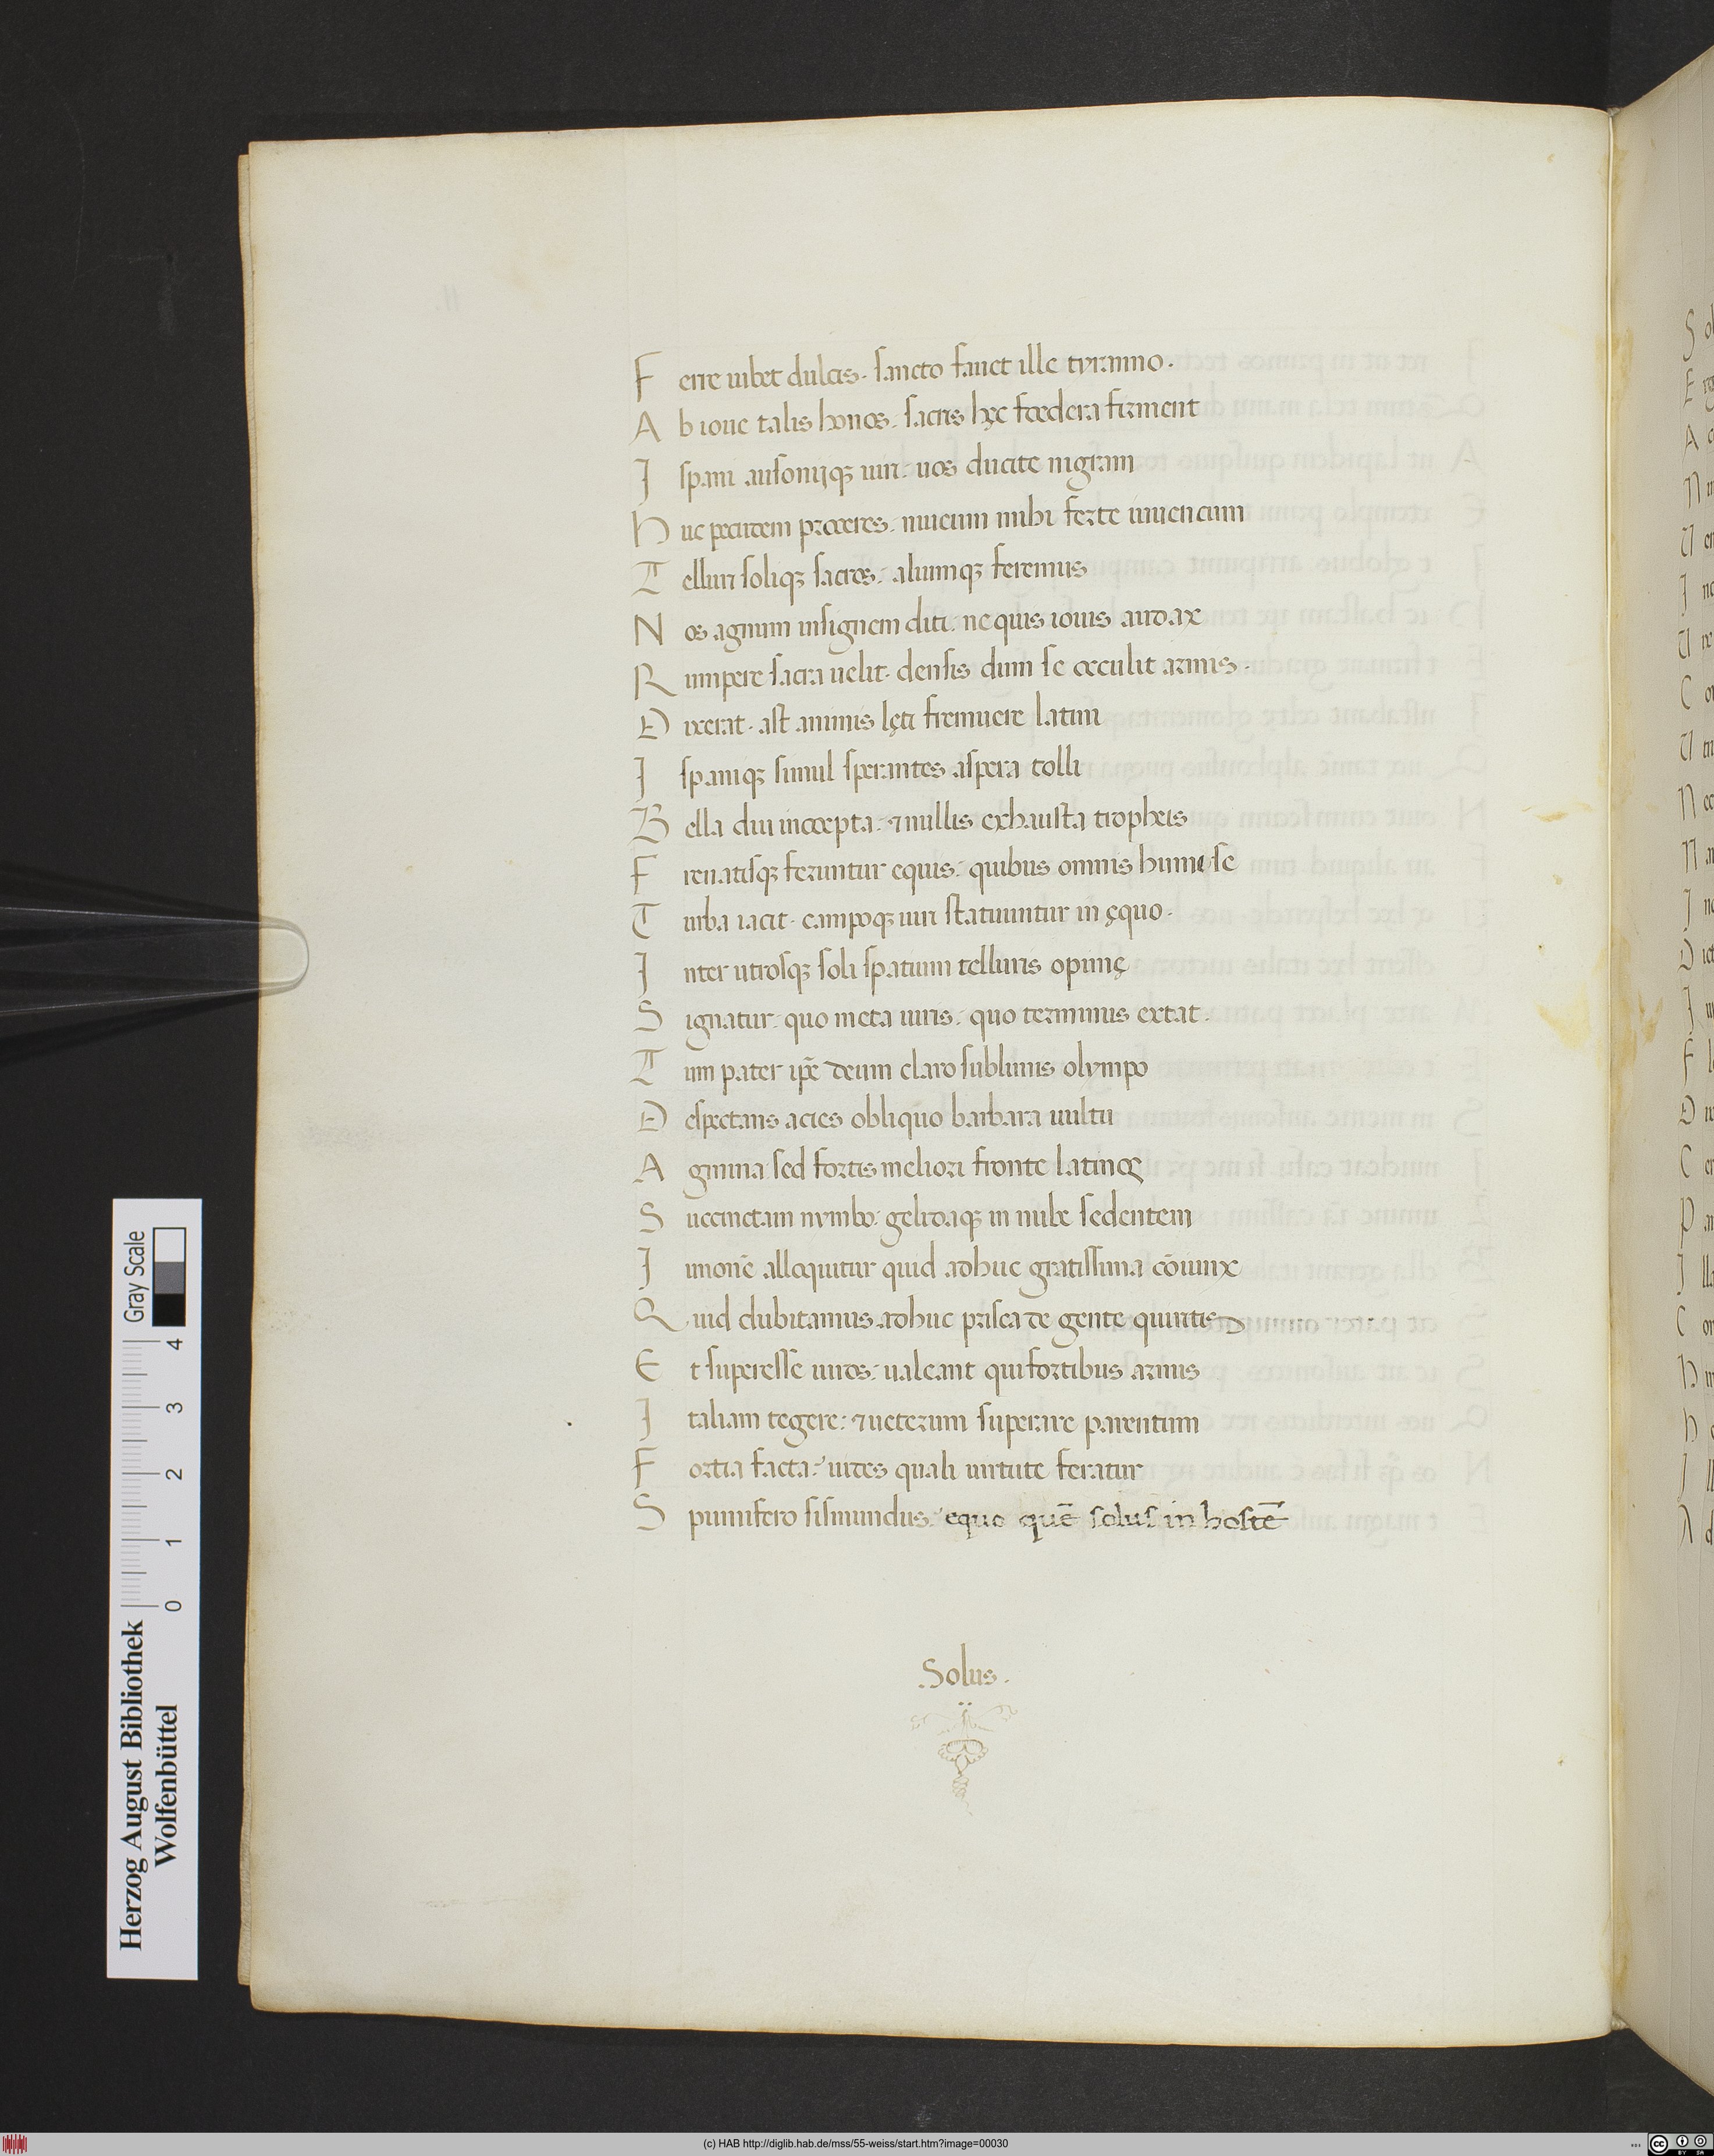 Ferre iubet dulcis. sancto fauet ille tyranno.
Ab ioue talis honos. sacris hęc foedera firment
Ispani ausonijqꝫ uiri. uos ducite nigram
Huc pecudem proceres. niueum mihi ferte iuuencum
Telluri soliqꝫ sacros. aliumqꝫ feremus
Nos agnum insignem diti. ne quis iouis audax
Rumpere sacra uelit. densis dum se occulit armis.
Dixerat. ast animis lęti fremuere latini
Ispaniqꝫ simul sperantes aspera tolli
Bella diu incoepta. & nullis exhausta tropheis
Frenatisqꝫ feruntur equis. quibus omnis humi se
Turba iacit. campoqꝫ uiri statuuntur in ęquo.
Inter utrosqꝫ soli spatium telluris opimę
Signatur. quo meta uiris. quo terminus extat.
Tum pater ip̄e deum claro sublimis olympo
Despectans acies obliquo barbara uultu
Agmina sed fortis meliori fronte latinos
Succinctam nymbo. gelidaqꝫ in nube sedentem
Iunonē alloquitur quid adhuc gratissima cōiunx
Quid dubitamus adhuc prisca de gente quirites
Et superesse uiros. ualeant qui fortibus armis
Italiam tegere. & ueterum superare parentum
Fortia facta. uides quali uirtute feratur
Spumifero sismundus. equo quē solus in hostē
Solus.
Herzog August Bibliothek
Wolfenbüttel
Gray Scale
0 1 2 3 4
(c) HAB http://diglib.hab.de/mss/55-weiss/start.htm?image=00030